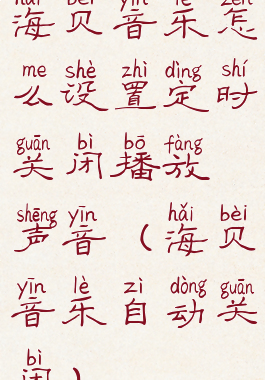 hǎi bèi yīn lè zěn
海贝音乐怎
me shè zhì dìng shí
么设置定时
guān bì bō fàng
关闭播放
shēng yīn hǎi bèi
声音（海贝
yīn lè zì dòng guān
音乐自动关
bì
闭）